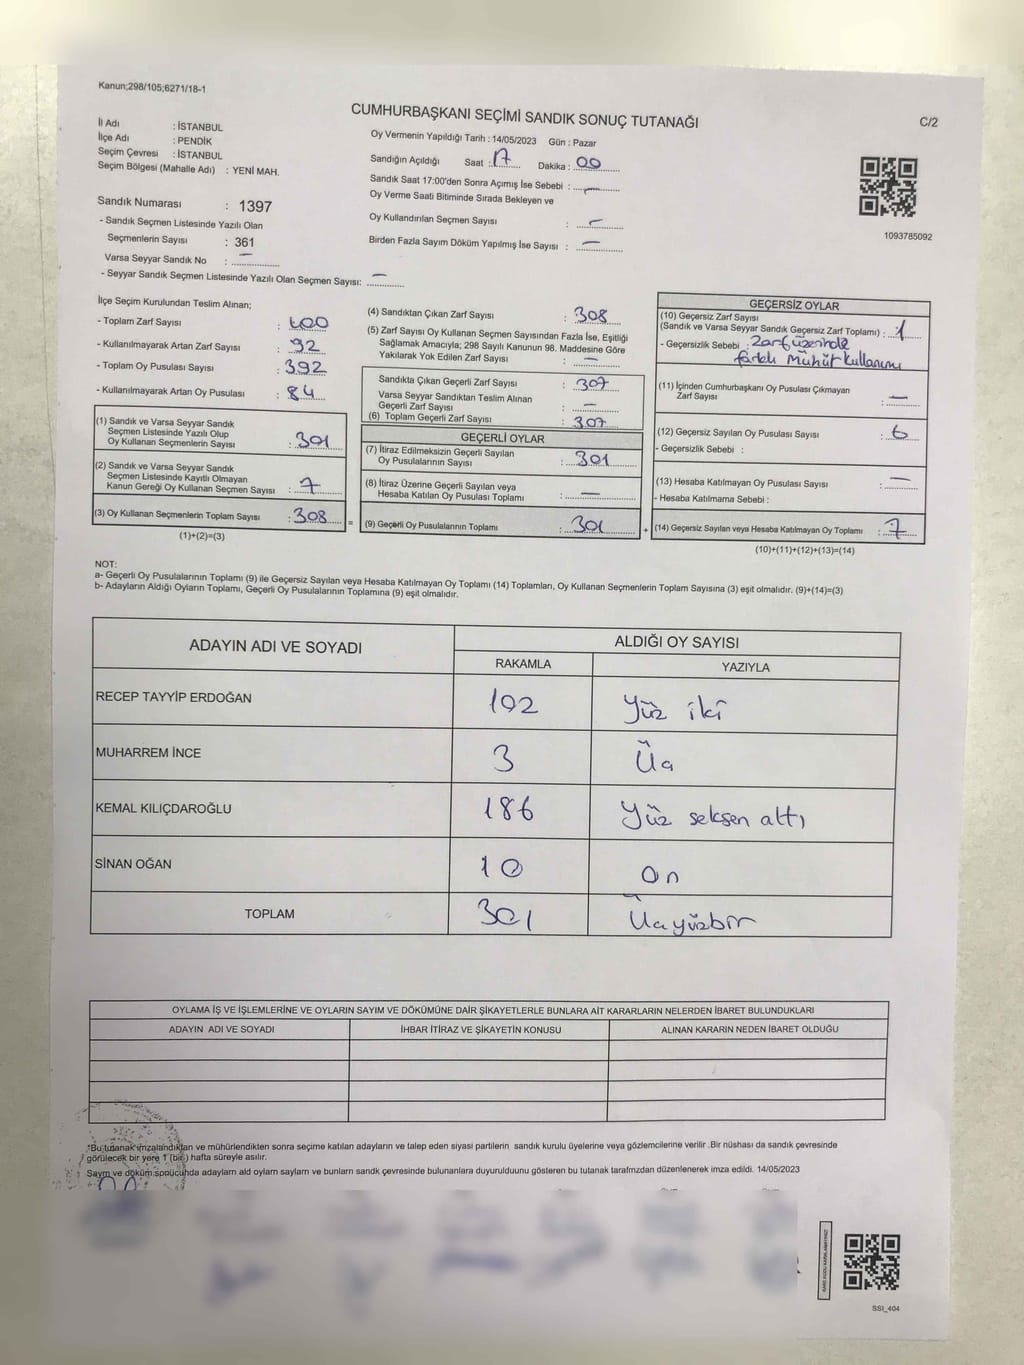 Kanun;298/105;6271/18-1
CUMHURBAŞKANI SEÇİMİ SANDIK SONUÇ TUTANAĞI
C/2
İl Adı : İSTANBUL
İlçe Adı : PENDİK
Seçim Çevresi : İSTANBUL
Seçim Bölgesi (Mahalle Adı) : YENİ MAH.
Oy Vermenin Yapıldığı Tarih : 14/05/2023 Gün : Pazar
Sandığın Açıldığı Saat : 17 Dakika : 00
Sandık Saat 17:00'den Sonra Açımış İse Sebebi : —
Oy Verme Saati Bitiminde Sırada Bekleyen ve
Oy Kullandırılan Seçmen Sayısı : —
Birden Fazla Sayım Döküm Yapılmış İse Sayısı : —
1093785092
Sandık Numarası : 1397
- Sandık Seçmen Listesinde Yazılı Olan
Seçmenlerin Sayısı : 361
Varsa Seyyar Sandık No : —
- Seyyar Sandık Seçmen Listesinde Yazılı Olan Seçmen Sayısı: —
İlçe Seçim Kurulundan Teslim Alınan;
- Toplam Zarf Sayısı : 400
- Kullanılmayarak Artan Zarf Sayısı : 92
- Toplam Oy Pusulası Sayısı : 392
- Kullanılmayarak Artan Oy Pusulası : 84
(1) Sandık ve Varsa Seyyar Sandık
Seçmen Listesinde Yazılı Olup
Oy Kullanan Seçmenlerin Sayısı : 301
(2) Sandık ve Varsa Seyyar Sandık
Seçmen Listesinde Kayıtlı Olmayan
Kanun Gereği Oy Kullanan Seçmen Sayısı : 7
(3) Oy Kullanan Seçmenlerin Toplam Sayısı : 308
(1)+(2)=(3)
=
(4) Sandıktan Çıkan Zarf Sayısı : 308
(5) Zarf Sayısı Oy Kullanan Seçmen Sayısından Fazla İse, Eşitliği
Sağlamak Amacıyla; 298 Sayılı Kanunun 98. Maddesine Göre
Yakılarak Yok Edilen Zarf Sayısı : —
Sandıkta Çıkan Geçerli Zarf Sayısı : 307
Varsa Seyyar Sandıktan Teslim Alınan
Geçerli Zarf Sayısı : —
(6) Toplam Geçerli Zarf Sayısı : 307
GEÇERLİ OYLAR
(7) İtiraz Edilmeksizin Geçerli Sayılan
Oy Pusulalarının Sayısı : 301
(8) İtiraz Üzerine Geçerli Sayılan veya
Hesaba Katılan Oy Pusulası Toplamı : —
(9) Geçerli Oy Pusulalarının Toplamı : 301
+
GEÇERSİZ OYLAR
(10) Geçersiz Zarf Sayısı
(Sandık ve Varsa Seyyar Sandık Geçersiz Zarf Toplamı) : 1
- Geçersizlik Sebebi : Zarf üzerinde
farklı Mühür kullanımı
(11) İçinden Cumhurbaşkanı Oy Pusulası Çıkmayan
Zarf Sayısı : —
(12) Geçersiz Sayılan Oy Pusulası Sayısı : 6
- Geçersizlik Sebebi :
(13) Hesaba Katılmayan Oy Pusulası Sayısı : —
- Hesaba Katılmama Sebebi :
(14) Geçersiz Sayılan veya Hesaba Katılmayan Oy Toplamı : 7
(10)+(11)+(12)+(13)=(14)
NOT:
a- Geçerli Oy Pusulalarının Toplamı (9) ile Geçersiz Sayılan veya Hesaba Katılmayan Oy Toplamı (14) Toplamları, Oy Kullanan Seçmenlerin Toplam Sayısına (3) eşit olmalıdır. (9)+(14)=(3)
b- Adayların Aldığı Oyların Toplamı, Geçerli Oy Pusulalarının Toplamına (9) eşit olmalıdır.
ADAYIN ADI VE SOYADI ALDIĞI OY SAYISI
RAKAMLA YAZIYLA
RECEP TAYYİP ERDOĞAN 102 Yüz iki
MUHARREM İNCE 3 Üç
KEMAL KILIÇDAROĞLU 186 Yüz seksen altı
SİNAN OĞAN 10 On
TOPLAM 301 Üçyüzbir
OYLAMA İŞ VE İŞLEMLERİNE VE OYLARIN SAYIM VE DÖKÜMÜNE DAİR ŞİKAYETLERLE BUNLARA AİT KARARLARIN NELERDEN İBARET BULUNDUKLARI
ADAYIN ADI VE SOYADI İHBAR İTİRAZ VE ŞİKAYETİN KONUSU ALINAN KARARIN NEDEN İBARET OLDUĞU
*Bu tutanak imzalandıktan ve mühürlendikten sonra seçime katılan adayların ve talep eden siyasi partilerin sandık kurulu üyelerine veya gözlemcilerine verilir .Bir nüshası da sandık çevresinde
görülecek bir yere 1 (bir) hafta süreyle asılır.
Sayım ve döküm sonucunda adayların ald oyların sayların ve bunların sandk çevresinde bulunanlara duyurulduunu gösteren bu tutanak tarafmzdan düzenlenerek imza edildi. 14/05/2023
SSI_404